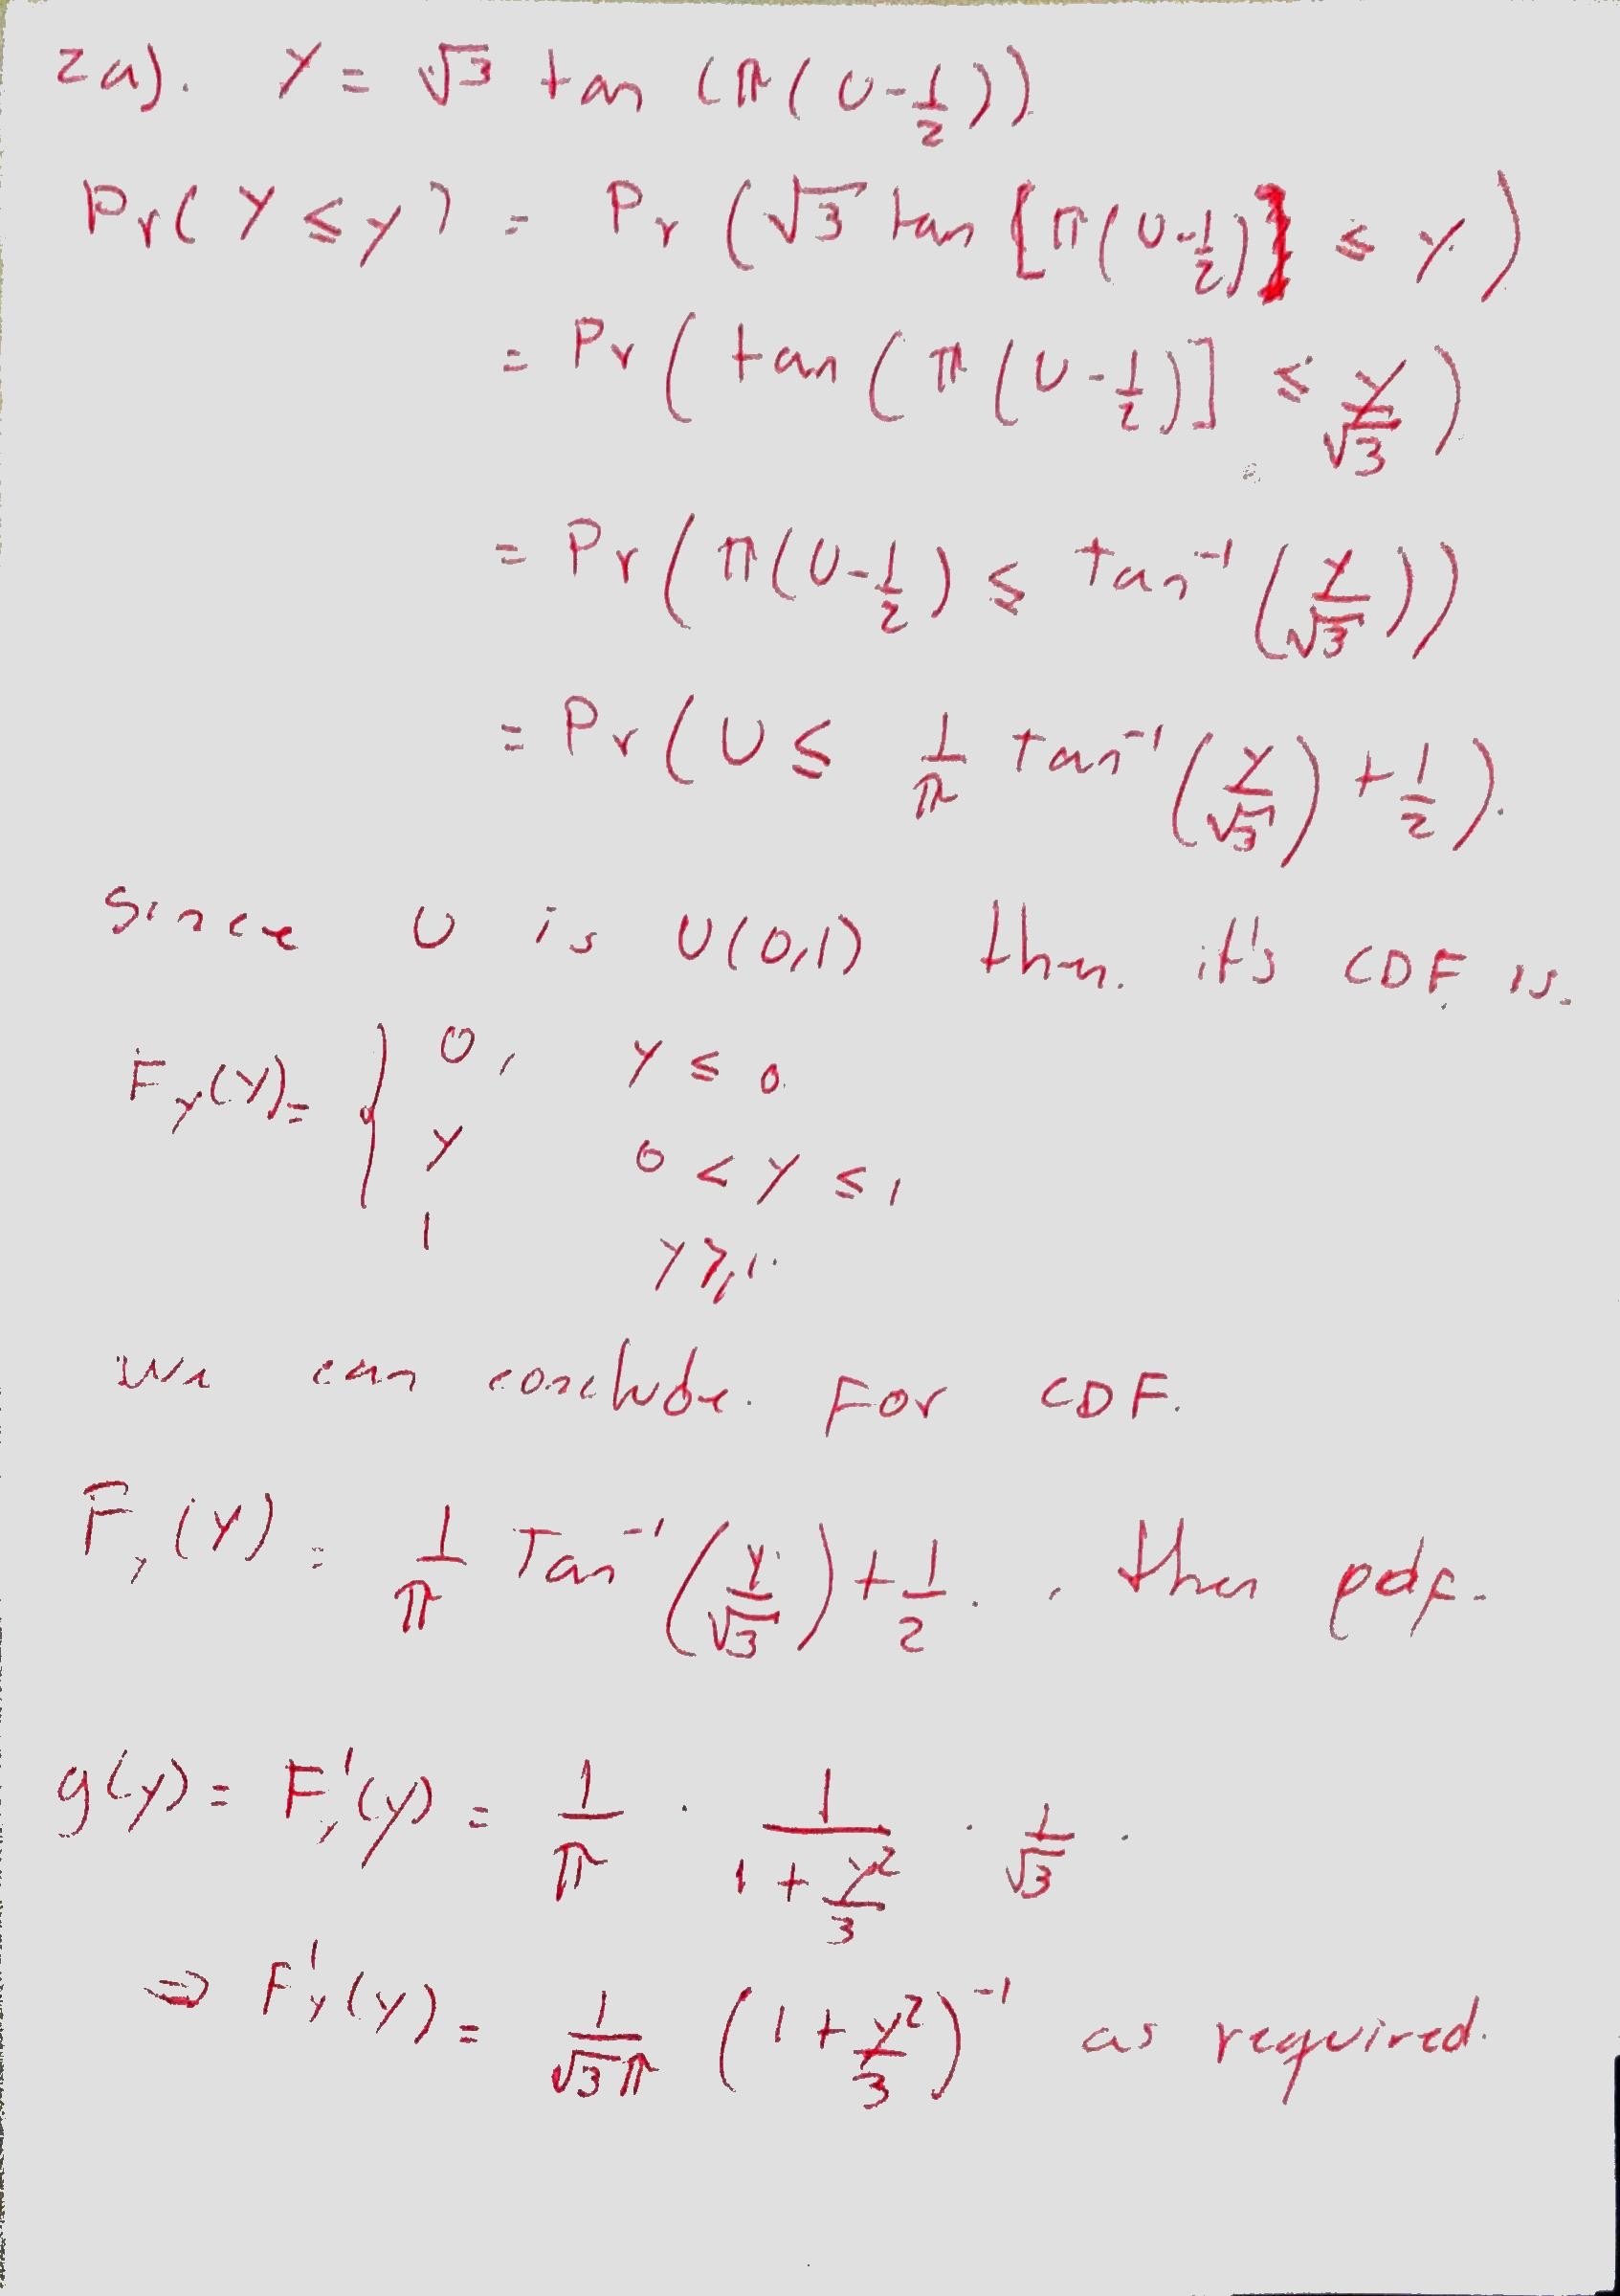 2a). Y = √3 tan (π(U-1/2))
Pr(Y ≤ y) = Pr (√3 tan [π(U-1/2)] ≤ y)
= Pr ( tan ( π (U-1/2)] ≤ y/√3 )
= Pr ( π(U-1/2) ≤ tan⁻¹ (y/√3))
= Pr ( U ≤ 1/π tan⁻¹ (y/√3) + 1/2).
Since U is U(0,1) then. it's CDF is.
F_Y(Y) = { 0, y ≤ 0.
y 0 < y ≤ 1
1 y ≥ 1.
we can conclude. For CDF.
F_Y(Y) = 1/π Tan⁻¹ (y/√3) + 1/2. , then pdf.
g(y) = F_Y'(y) = 1/π · 1/(1 + y²/3) · 1/√3 .
⇒ F'_Y(y) = 1/(√3π) (1 + y²/3)⁻¹ as required.